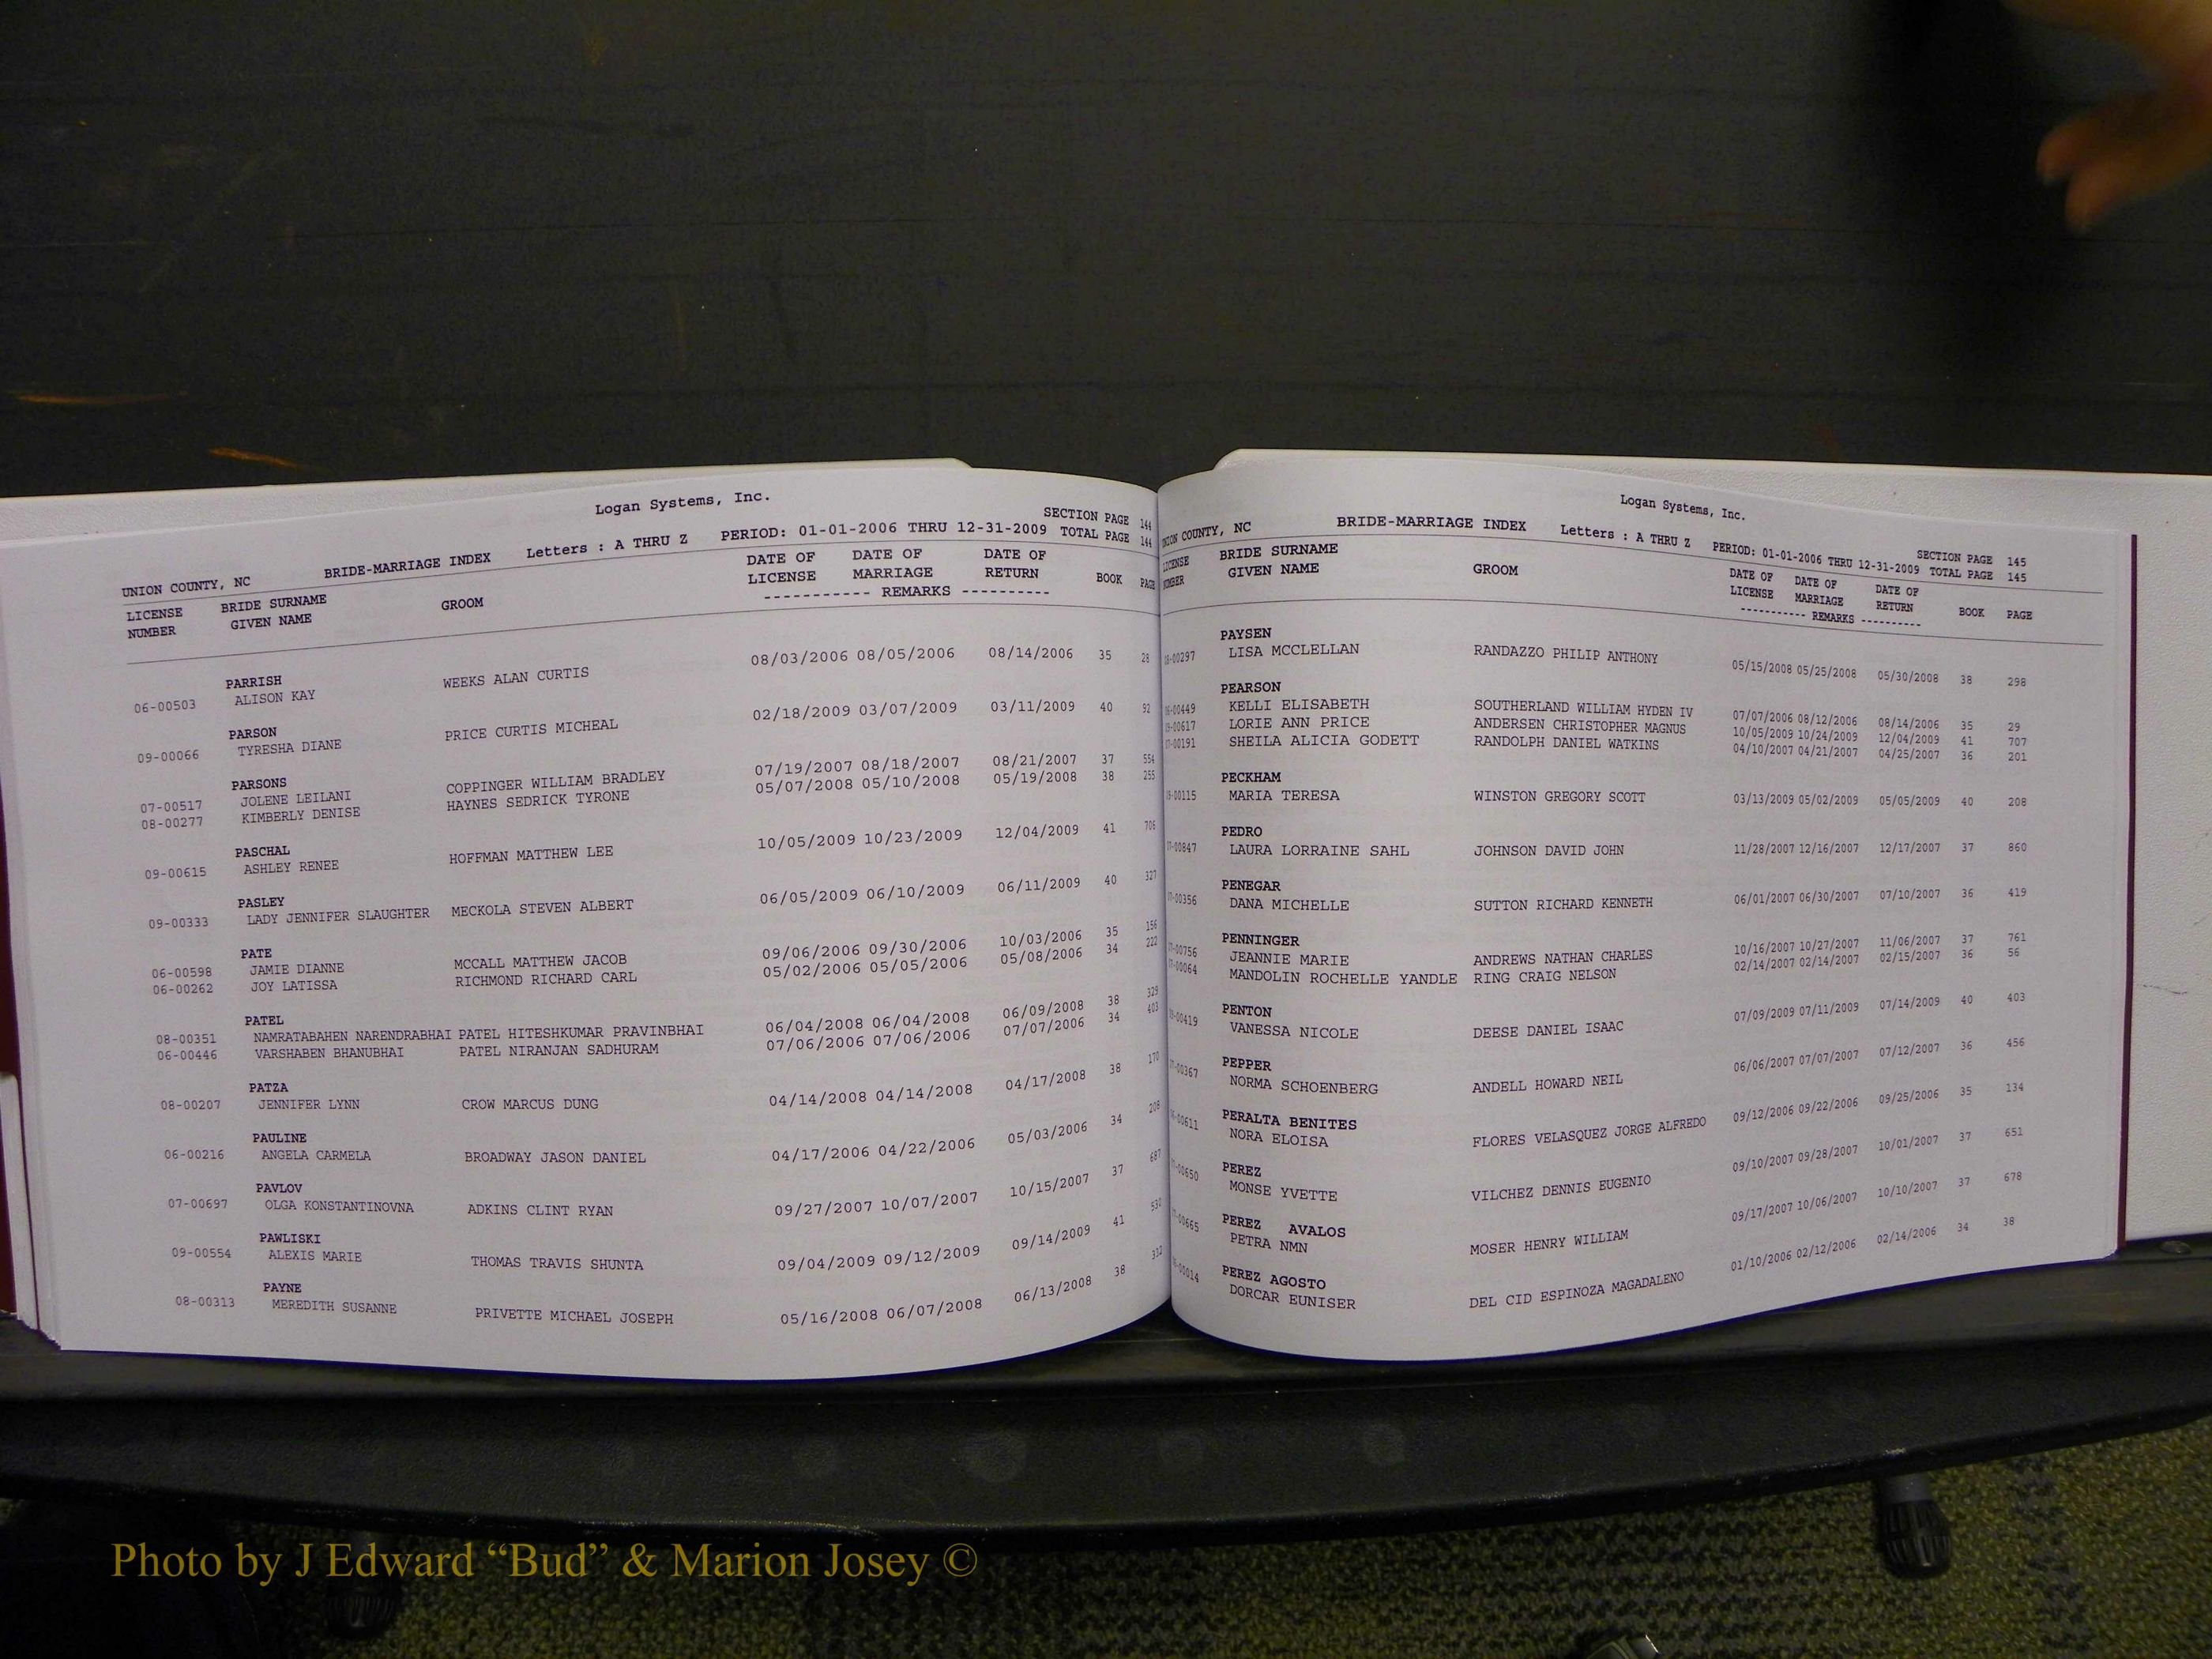 Logan Systems, Inc.
UNION COUNTY, NC BRIDE-MARRIAGE INDEX Letters : A THRU Z PERIOD: 01-01-2006 THRU 12-31-2009 SECTION PAGE 144
TOTAL PAGE 144
LICENSE NUMBER BRIDE SURNAME GIVEN NAME GROOM DATE OF LICENSE DATE OF MARRIAGE DATE OF RETURN BOOK PAGE
----------- REMARKS ----------
PARRISH
06-00503 ALISON KAY WEEKS ALAN CURTIS 08/03/2006 08/05/2006 08/14/2006 35 28
PARSON
09-00066 TYRESHA DIANE PRICE CURTIS MICHEAL 02/18/2009 03/07/2009 03/11/2009 40 92
PARSONS
07-00517 JOLENE LEILANI COPPINGER WILLIAM BRADLEY 07/19/2007 08/18/2007 08/21/2007 37 554
08-00277 KIMBERLY DENISE HAYNES SEDRICK TYRONE 05/07/2008 05/10/2008 05/19/2008 38 255
PASCHAL
09-00615 ASHLEY RENEE HOFFMAN MATTHEW LEE 10/05/2009 10/23/2009 12/04/2009 41 706
PASLEY
09-00333 LADY JENNIFER SLAUGHTER MECKOLA STEVEN ALBERT 06/05/2009 06/10/2009 06/11/2009 40 327
PATE
06-00598 JAMIE DIANNE MCCALL MATTHEW JACOB 09/06/2006 09/30/2006 10/03/2006 35 156
06-00262 JOY LATISSA RICHMOND RICHARD CARL 05/02/2006 05/05/2006 05/08/2006 34 222
PATEL
08-00351 NAMRATABAHEN NARENDRABHAI PATEL HITESHKUMAR PRAVINBHAI 06/04/2008 06/04/2008 06/09/2008 38 329
06-00446 VARSHABEN BHANUBHAI PATEL NIRANJAN SADHURAM 07/06/2006 07/06/2006 07/07/2006 34 403
PATZA
08-00207 JENNIFER LYNN CROW MARCUS DUNG 04/14/2008 04/14/2008 04/17/2008 38 170
PAULINE
06-00216 ANGELA CARMELA BROADWAY JASON DANIEL 04/17/2006 04/22/2006 05/03/2006 34 208
PAVLOV
07-00697 OLGA KONSTANTINOVNA ADKINS CLINT RYAN 09/27/2007 10/07/2007 10/15/2007 37 687
PAWLISKI
09-00554 ALEXIS MARIE THOMAS TRAVIS SHUNTA 09/04/2009 09/12/2009 09/14/2009 41
PAYNE
08-00313 MEREDITH SUSANNE PRIVETTE MICHAEL JOSEPH 05/16/2008 06/07/2008 06/13/2008 38
Logan Systems, Inc.
UNION COUNTY, NC BRIDE-MARRIAGE INDEX Letters : A THRU Z PERIOD: 01-01-2006 THRU 12-31-2009 SECTION PAGE 145
TOTAL PAGE 145
LICENSE NUMBER BRIDE SURNAME GIVEN NAME GROOM DATE OF LICENSE DATE OF MARRIAGE DATE OF RETURN BOOK PAGE
----------- REMARKS ----------
PAYSEN
-00297 LISA MCCLELLAN RANDAZZO PHILIP ANTHONY 05/15/2008 05/25/2008 05/30/2008 38 298
PEARSON
-00449 KELLI ELISABETH SOUTHERLAND WILLIAM HYDEN IV 07/07/2006 08/12/2006 08/14/2006 35 29
-00617 LORIE ANN PRICE ANDERSEN CHRISTOPHER MAGNUS 10/05/2009 10/24/2009 12/04/2009 41 707
-00191 SHEILA ALICIA GODETT RANDOLPH DANIEL WATKINS 04/10/2007 04/21/2007 04/25/2007 36 201
PECKHAM
-00115 MARIA TERESA WINSTON GREGORY SCOTT 03/13/2009 05/02/2009 05/05/2009 40 208
PEDRO
-00847 LAURA LORRAINE SAHL JOHNSON DAVID JOHN 11/28/2007 12/16/2007 12/17/2007 37 860
PENEGAR
-00356 DANA MICHELLE SUTTON RICHARD KENNETH 06/01/2007 06/30/2007 07/10/2007 36 419
PENNINGER
-00756 JEANNIE MARIE ANDREWS NATHAN CHARLES 10/16/2007 10/27/2007 11/06/2007 37 761
-00064 MANDOLIN ROCHELLE YANDLE RING CRAIG NELSON 02/14/2007 02/14/2007 02/15/2007 36 56
PENTON
-00419 VANESSA NICOLE DEESE DANIEL ISAAC 07/09/2009 07/11/2009 07/14/2009 40 403
PEPPER
-00367 NORMA SCHOENBERG ANDELL HOWARD NEIL 06/06/2007 07/07/2007 07/12/2007 36 456
PERALTA BENITES
-00611 NORA ELOISA FLORES VELASQUEZ JORGE ALFREDO 09/12/2006 09/22/2006 09/25/2006 35 134
PEREZ
-00650 MONSE YVETTE VILCHEZ DENNIS EUGENIO 09/10/2007 09/28/2007 10/01/2007 37 651
PEREZ AVALOS
-00665 PETRA NMN MOSER HENRY WILLIAM 09/17/2007 10/06/2007 10/10/2007 37 678
PEREZ AGOSTO
-00014 DORCAR EUNISER DEL CID ESPINOZA MAGADALENO 01/10/2006 02/12/2006 02/14/2006 34 38
Photo by J Edward “Bud” & Marion Josey ©